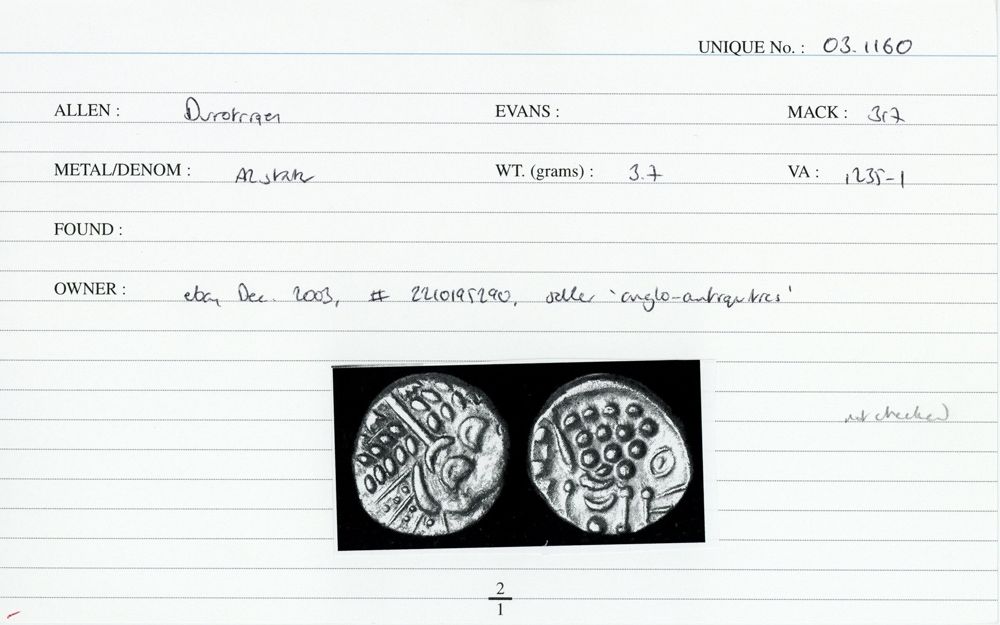 UNIQUE No. : 03.1160
ALLEN : Durotriges EVANS : MACK : 317
METAL/DENOM : AR stater WT. (grams) : 3.7 VA : 1235-1
FOUND :
OWNER : ebay Dec. 2003, # 2210195290, seller 'anglo-antiquities'
not checked
2
1